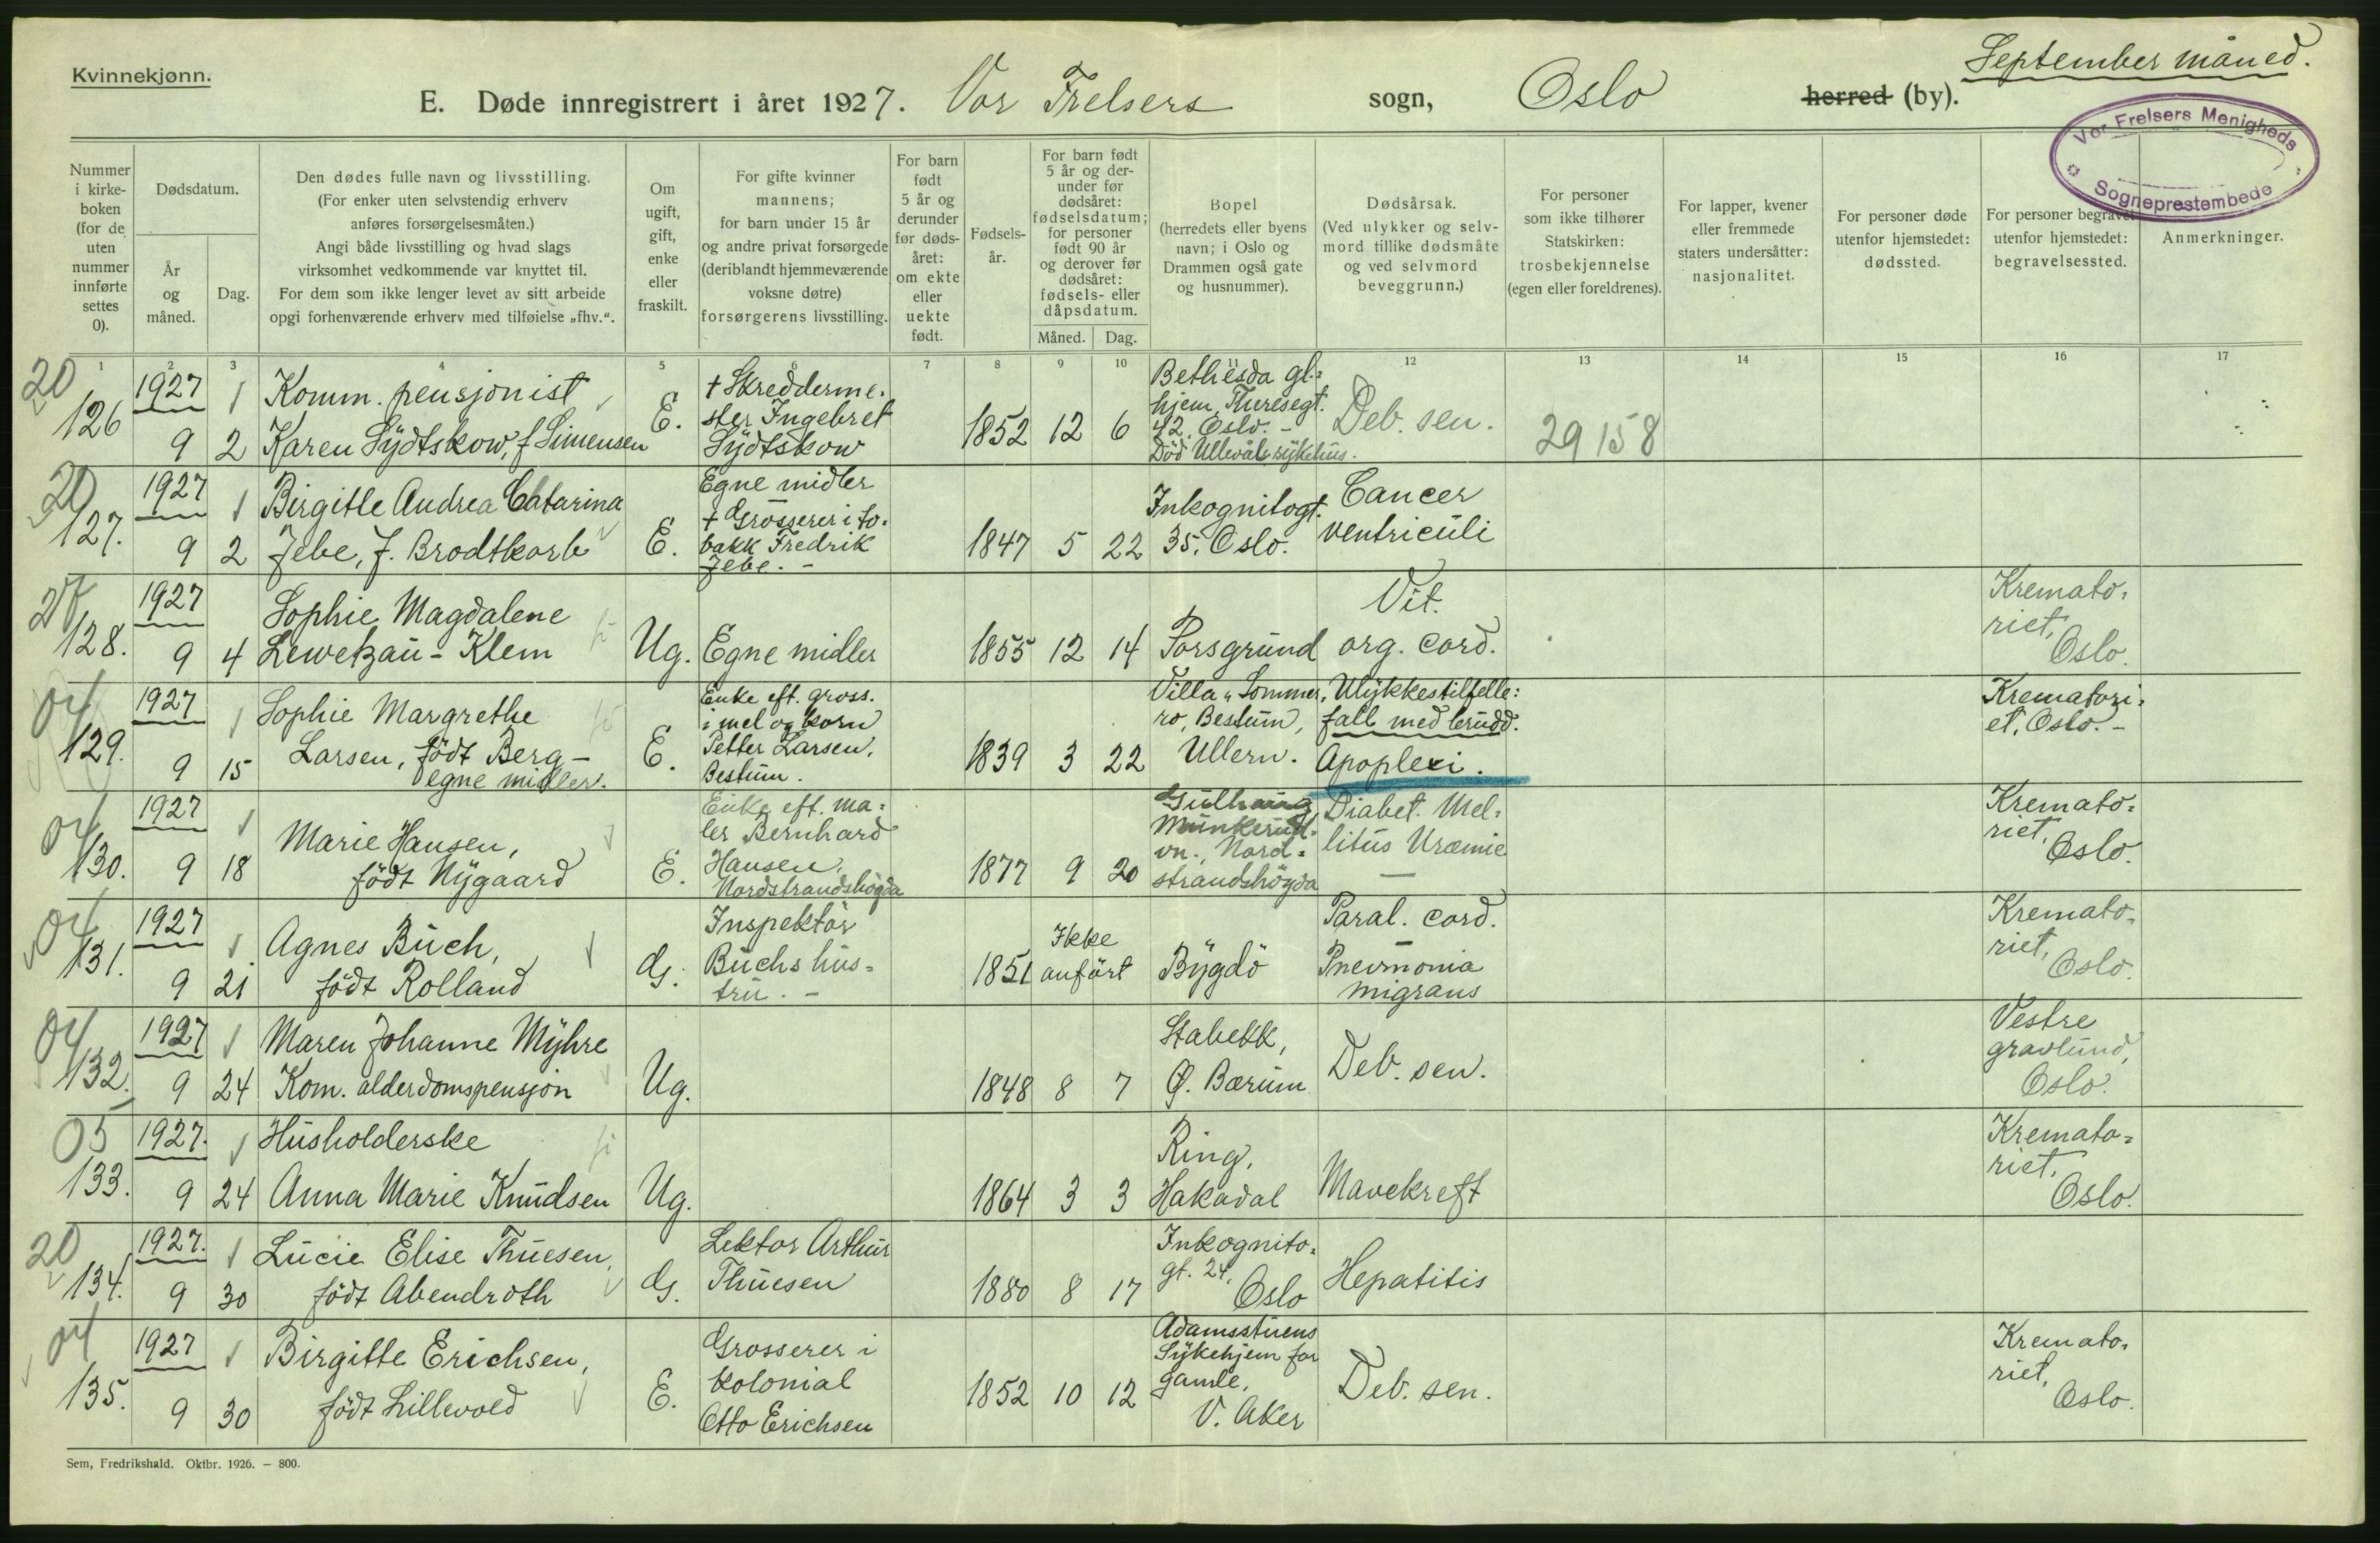 Kvinnekjønn.
September måned.
E. Døde innregistrert i året 1927. Vor Frelsers sogn, Oslo herred (by).
Vor Frelsers Menigheds
Sogneprestembede
Nummer i kirke-boken (for de uten nummer innførte settes 0).
Dødsdatum.
År og måned.
Dag.
Den dødes fulle navn og livsstilling.
(For enker uten selvstendig erhverv
anføres forsørgelsesmåten.)
Angi både livsstilling og hvad slags
virksomhet vedkommende var knyttet til.
For dem som ikke lenger levet av sitt arbeide
opgi forhenværende erhverv med tilføielse „fhv.“.
Om ugift, gift, enke eller fraskilt.
For gifte kvinner
mannens;
for barn under 15 år
og andre privat forsørgede
(deriblandt hjemmeværende
voksne døtre)
forsørgerens livsstilling.
For barn født 5 år og derunder før døds-året: om ekte eller uekte født.
Fødsels-år.
For barn født
5 år og der-
under før
dødsåret:
fødselsdatum;
for personer
født 90 år
og derover før
dødsåret:
fødsels- eller
dåpsdatum.
Måned.
Dag.
Bopel
(herredets eller byens
navn; i Oslo og
Drammen også gate
og husnummer).
Dødsårsak.
(Ved ulykker og selv-
mord tillike dødsmåte
og ved selvmord
beveggrunn.)
For personer
som ikke tilhører
Statskirken:
trosbekjennelse
(egen eller foreldrenes).
For lapper, kvener
eller fremmede
staters undersåtter:
nasjonalitet.
For personer døde
utenfor hjemstedet:
dødssted.
For personer begravet
utenfor hjemstedet:
begravelsessted.
Anmerkninger.
1 2 3 4 5 6 7 8 9 10 11 12 13 14 15 16 17
20
126
1927
9 2
Komm. pensjonist
Karen Sydtskow, f Simensen
E.
+ Skredderme-
ster Ingebret
Sydtskow
1852 12 6
Bethesda gl.=
hjem, Theresegt.
42. Oslo. -
Död Ullevål sykehus.
Deb. sen.
29158
20
127.
1927
9 2
Birgitte Andrea Chatarina
Jebe, f. Brodtkorb
E.
Egne midler
+ Grosserer i to-
bakk Fredrik
Jebe. -
1847 5 22
Inkognitogt.
35. Oslo.
Cancer
ventriculi
128.
1927
9 4
Sophie Magdalene
Lewetzau - Klem
Ug.
Egne midler
1855 12 14
Porsgrund
Vit.
org. cord.
Kremato-
riet,
Oslo.
04
129.
1927
9 15
Sophie Margrethe
Larsen, födt Berg -
egne midler.
E.
Enke eft. gross.
i mel og korn
Petter Larsen,
Bestum.
1839 3 22
Villa „Sommer-
ro, Bestum,
Ullern.
Ulykkestilfelle:
fall med brudd.
Apoplexi.
Krematori-
et, Oslo. -
04
130.
1927
9 18
Marie Hansen,
födt Nygaard
E.
Enke eft. ma-
ler Bernhard
Hansen,
Nordstrandshögda
1877 9 20
Munkerud-
vn., Nord-
strandshögda
Diabet. Mel-
litus Uræmie
Kremato-
riet,
Oslo.
04
131.
1927
9 21
Agnes Buch,
födt Rolland
G.
Inspektör
Buchs hus-
tru. -
1851
Ikke
anfört
Bygdö
Paral. cord.
Pneumonia
migrans
Kremato-
riet,
Oslo.
04
132.
1927
9 24
Maren Johanne Myhre
Kom. alderdomspensjon
Ug.
1848 8 7
Stabekk,
Ø. Bærum
Deb. sen.
Vestre
gravlund,
Oslo.
05
133.
1927.
9 24
Husholderske
Anna Marie Knudsen
Ug.
1864 3 3
Ring,
Hakadal
Mavekreft
Kremato-
riet,
Oslo.
20
134.
1927.
9 30
Lucie Elise Thuesen,
födt Abendroth
G.
Lektor Arthur
Thuesen
1880 8 17
Inkognito-
gt. 24,
Oslo
Hepatitis
04
135.
1927
9 30
Birgitte Erichsen,
födt Lillevold
E.
Grosserer i
kolonial
Otto Erichsen
1852 10 12
Adamsstuens
Sykehjem for
gamle,
V. Aker
Deb. sen.
Kremato-
riet,
Oslo.
Sem, Fredrikshald. Oktbr. 1926. – 800.